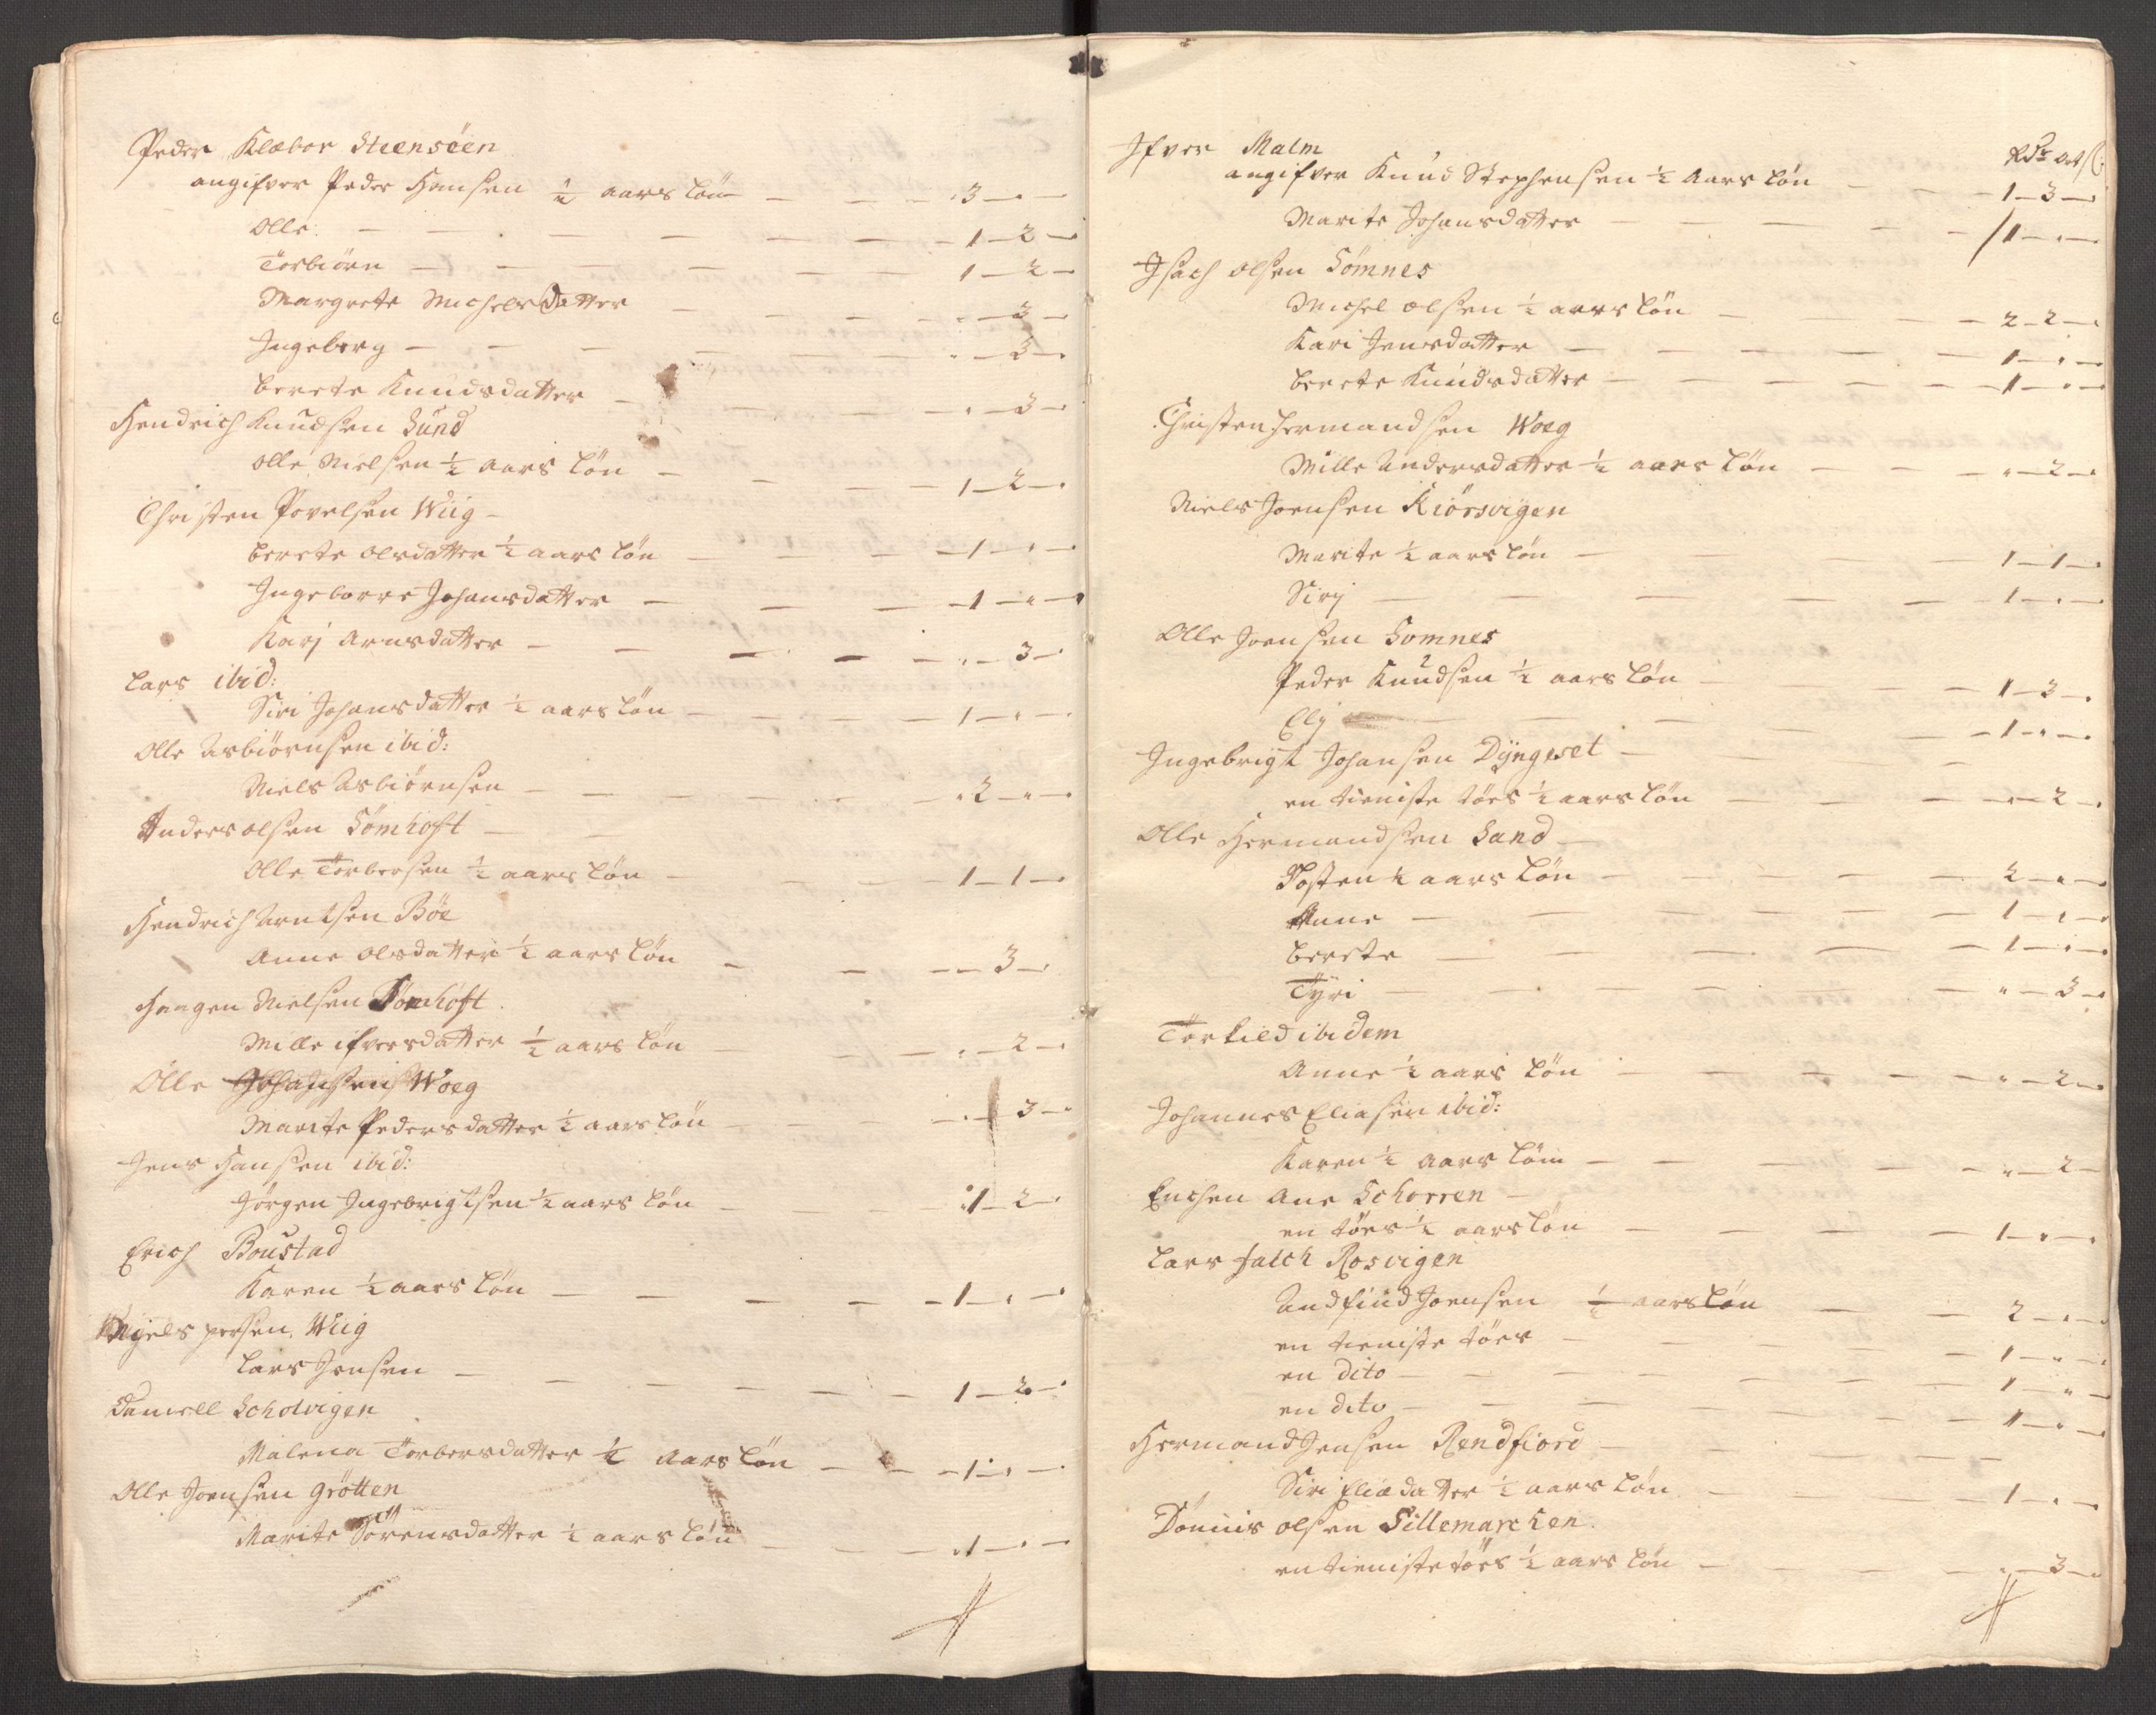 Peder Klæboe Steensöen
angifver Peder Hansen ½ aars lön — — — . 3 — . —
Olle — — — — — — 1 — 2 —
Torbiörn — — — — — 1 — 2 —
Margrete Michelsdatter — — — . — 3 — .
Ingeborg — — — — — . — 3 — .
berete Knudsdatter — — — — . — 3 — .
Hendrich Knudsen Sund
olle Nielsen ½ aars lön — — — 1 — 2 — .
Christen Povelsen Wiig —
berete olsdatter ½ aars lön — — — 1 — . — .
Ingeborre Johansdatter — — — 1 — . — .
Karj arnsdatter — — — — — . — 3 — .
Lars ibid:
Siri Johansdatter ½ aars lön — — — 1 — . — .
Olle Asbiörnsen ibid:
Niels Asbiörnsen — — — — . 2 — . — .
Anders olsen Sömhoft — —
Olle Torbersen ½ aars lön — — — 1 — 1 — .
Hendrich Arntsen Böe
Anne olsdatter ½ aars lön — — — — 3 — .
Haagen Nielsen Sömhoft.
Mille ifversdatter ½ aars lön — — — . — 2 — .
Olle Johansen Woeg
Marite Pedersdatter ½ aars lön — — — . — 3 — .
Jens Hansen ibid:
Jörgen Ingebrigtsen ½ aars lön — — — 1 — 2 — .
Erich Boustad
Karen ½ aars lön — — — — — 1 — . — .
Nijels persen Wiig
Lars Jensen — — — — — — 1 — 2 — .
Daniell Scholvigen
Malena Torbersdatter ½ aars lön — — — 1 — . —
Olle Joensen grötten
Marite Sörensdatter ½ aars lön — — — . 1 — . —
Ifver Malm Rdr ort s:
angifver Knud Stephensen ½ aars lön — — — 1 — 3 — .
Marite Johansdatter — — — — — 1 — . — .
Isach olsen Sömnes
Michel olsen ½ aars lön — — — 2 — 2 — .
Kari Jensdatter — — — — — 1 — . — .
berete Knudsdatter — — — — — 1 — . — .
Christen Hermandsen Woeg
Mille Andersdatter ½ aars lön — — — . — 2 — .
Niels Joensen Kiörsvigen
Marite ½ aars lön — — — — 1 — 1 — .
Sirj — — — — — 1 — . — .
Olle Joensen Somnes
Peder Knudsen ½ aars lön — — — 1 — 3 — .
Elj — — — — 1 — . — .
Ingebrigt Johansen Dÿngeset — — —
en tieniste töes ½ aars lön — — — . — 2 — .
Olle Hermandsen Sand —
Tosten ½ aars lön — — — — 2 — . — .
Anne — — — — — — 1 — . — .
berete — — — — — 1 — . — .
Tyri — — — — — . — 3 — .
Torkild ibidem
Anne ½ aars lön — — — — . — 2 — .
Johannes Eliasen ibid:
Karen ½ aars lön — — — — . — 2 —
Enchen Ane Schorren —
en töes ½ aars lön — — — — 1 — . — .
Lars falch Rosvigen
Andfind Joensen ½ aars lön — — 2 — . — .
en tieniste töes — — — — 1 — . — .
en dito — — — — — 1 — . —
en dito — — — — — 1 — . —
Hermand Jensen Rendfiord — — — —
Siri Eliædatter ½ aars lön — — — 1 — . — .
Dönnis olsen Tillemarcken.
en tieniste töes ½ aars lön — — — . — 3 — .